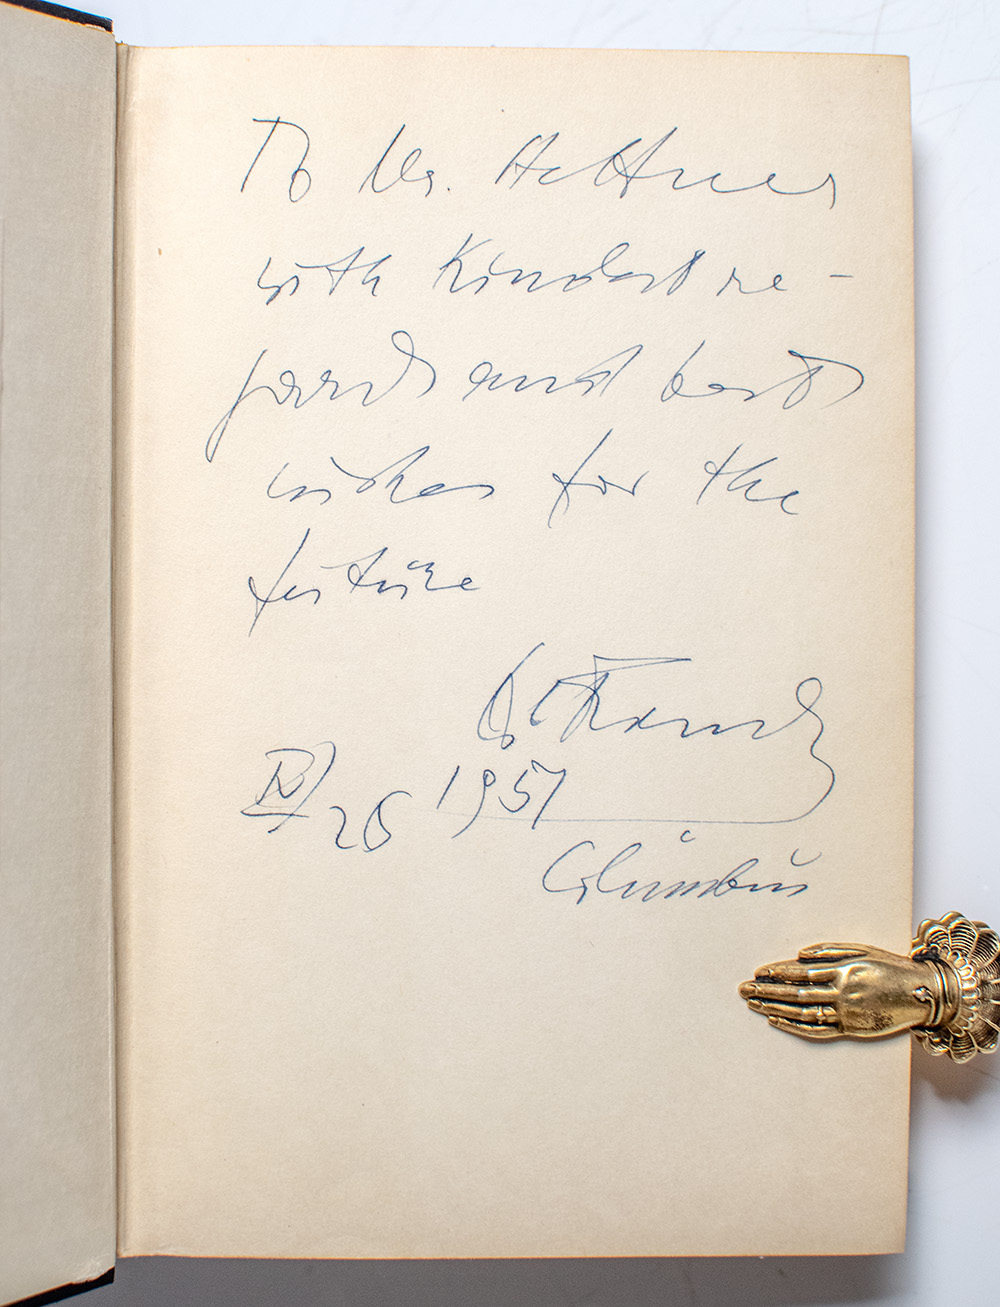 To Mr. Hettner
with kindest re-
gards and best
wishes for the
future
IV/26 1951
Columbus